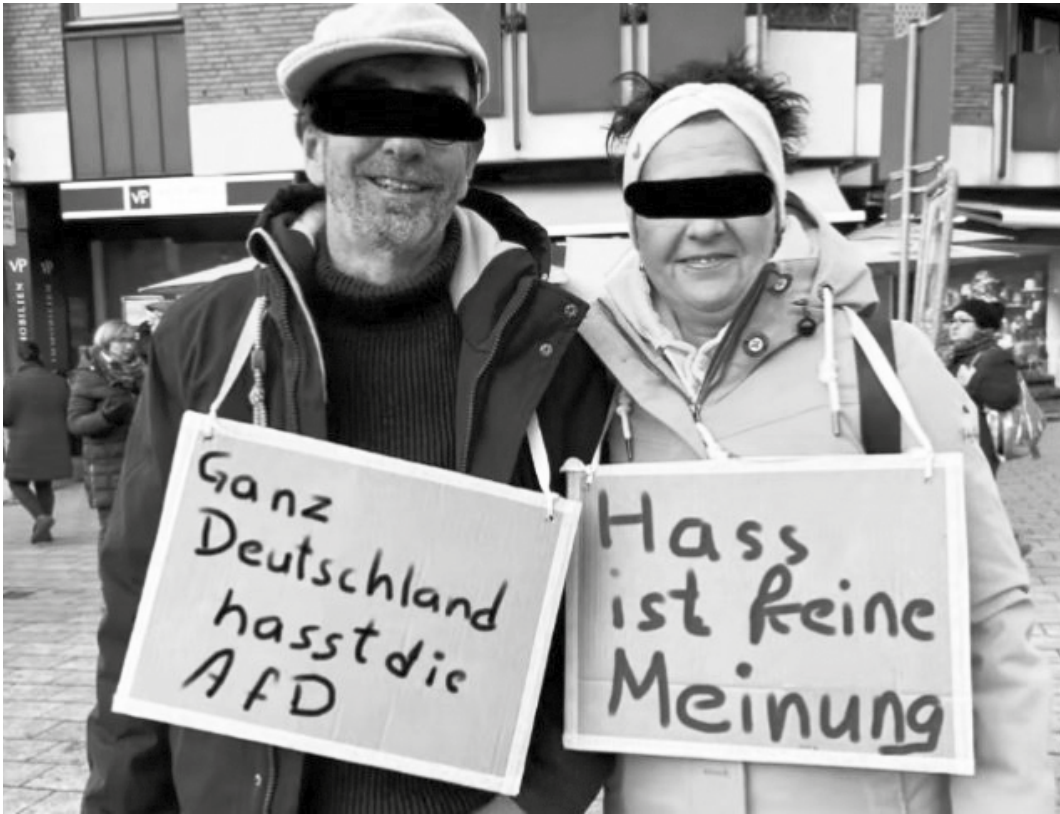 VP
VP
IMMOBILIEN
Ganz
Deutschland
hasst die
AfD
Hass
ist keine
Meinung